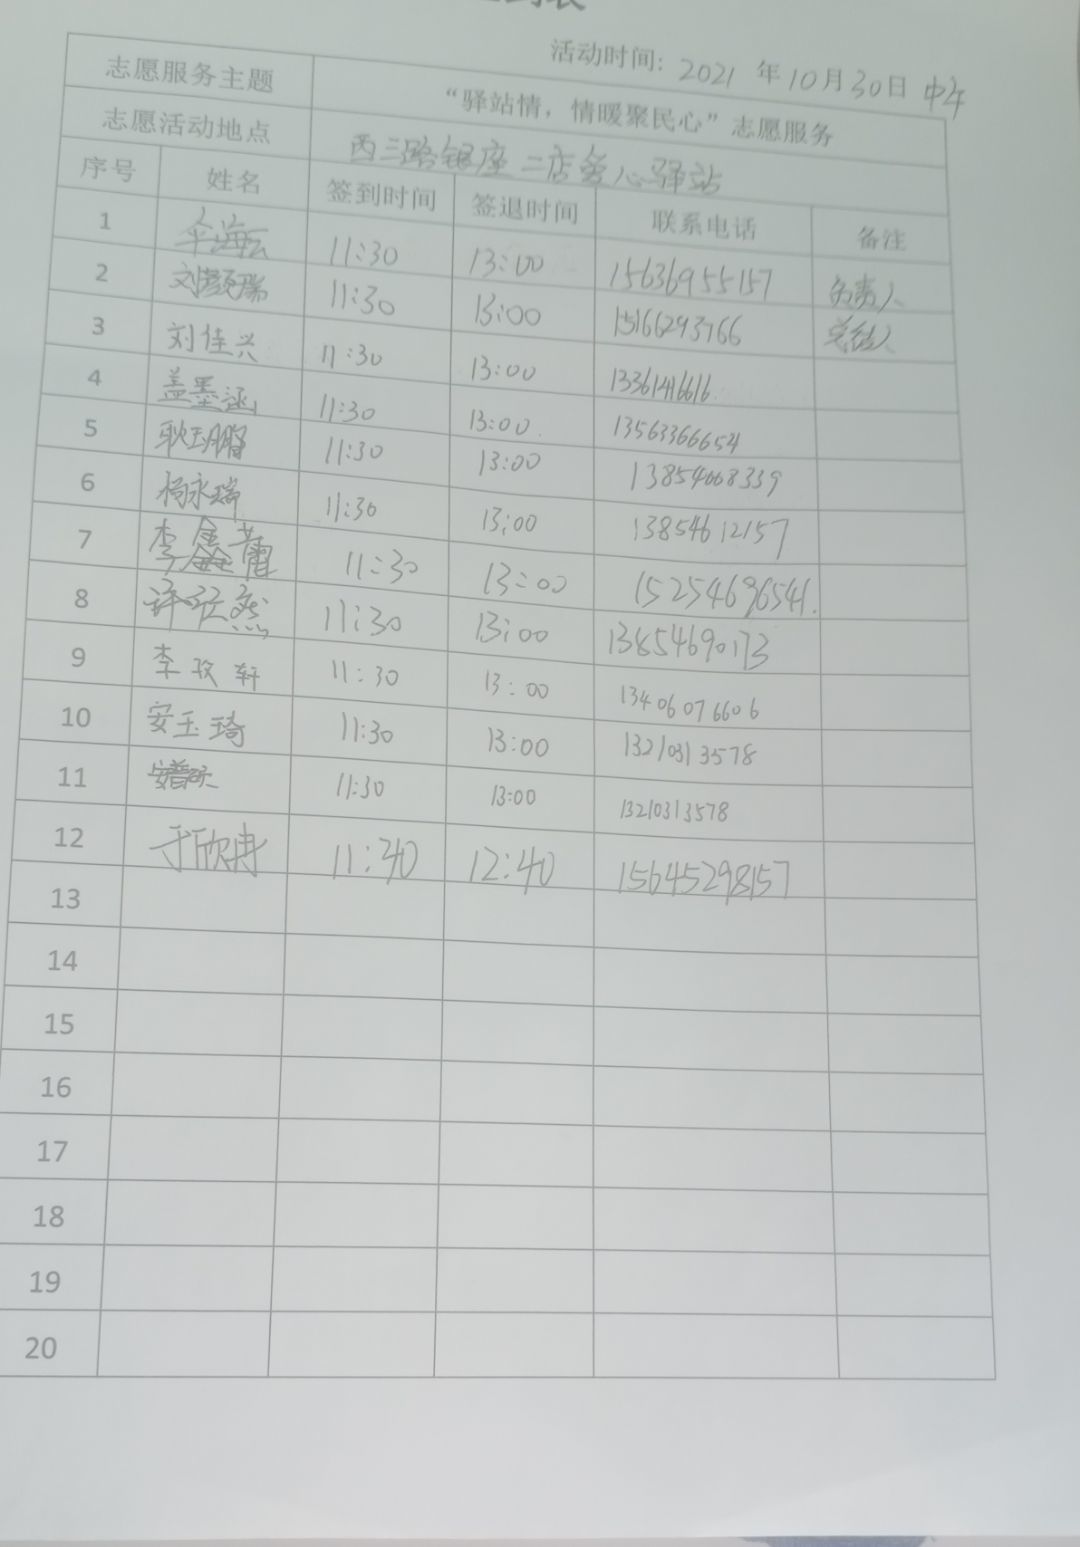 活动时间: 2021 年 10 月 30 日 中午
志愿服务主题 “驿站情，情暖聚民心”志愿服务
志愿活动地点 西三路银座二店爱心驿站
序号 姓名 签到时间 签退时间 联系电话 备注
1 海云 11:30 13:00 15636955157 负责人
2 刘颜瑞 11:30 13:00 15166293766 总结人
3 刘佳兴 11:30 13:00 13361416616
4 盖墨涵 11:30 13:00 13563366654
5 耿玉鹏 11:30 13:00 13854668339
6 杨永瑞 11:30 13:00 13854612157
7 李鑫蕾 11:30 13:00 15254696541.
8 许 然 11:30 13:00 13854690173
9 李玫轩 11:30 13:00 13406076606
10 安玉琦 11:30 13:00 13210313578
11 11:30 13:00 13210313578
12 于欣冉 11:40 12:40 15645298157
13
14
15
16
17
18
19
20